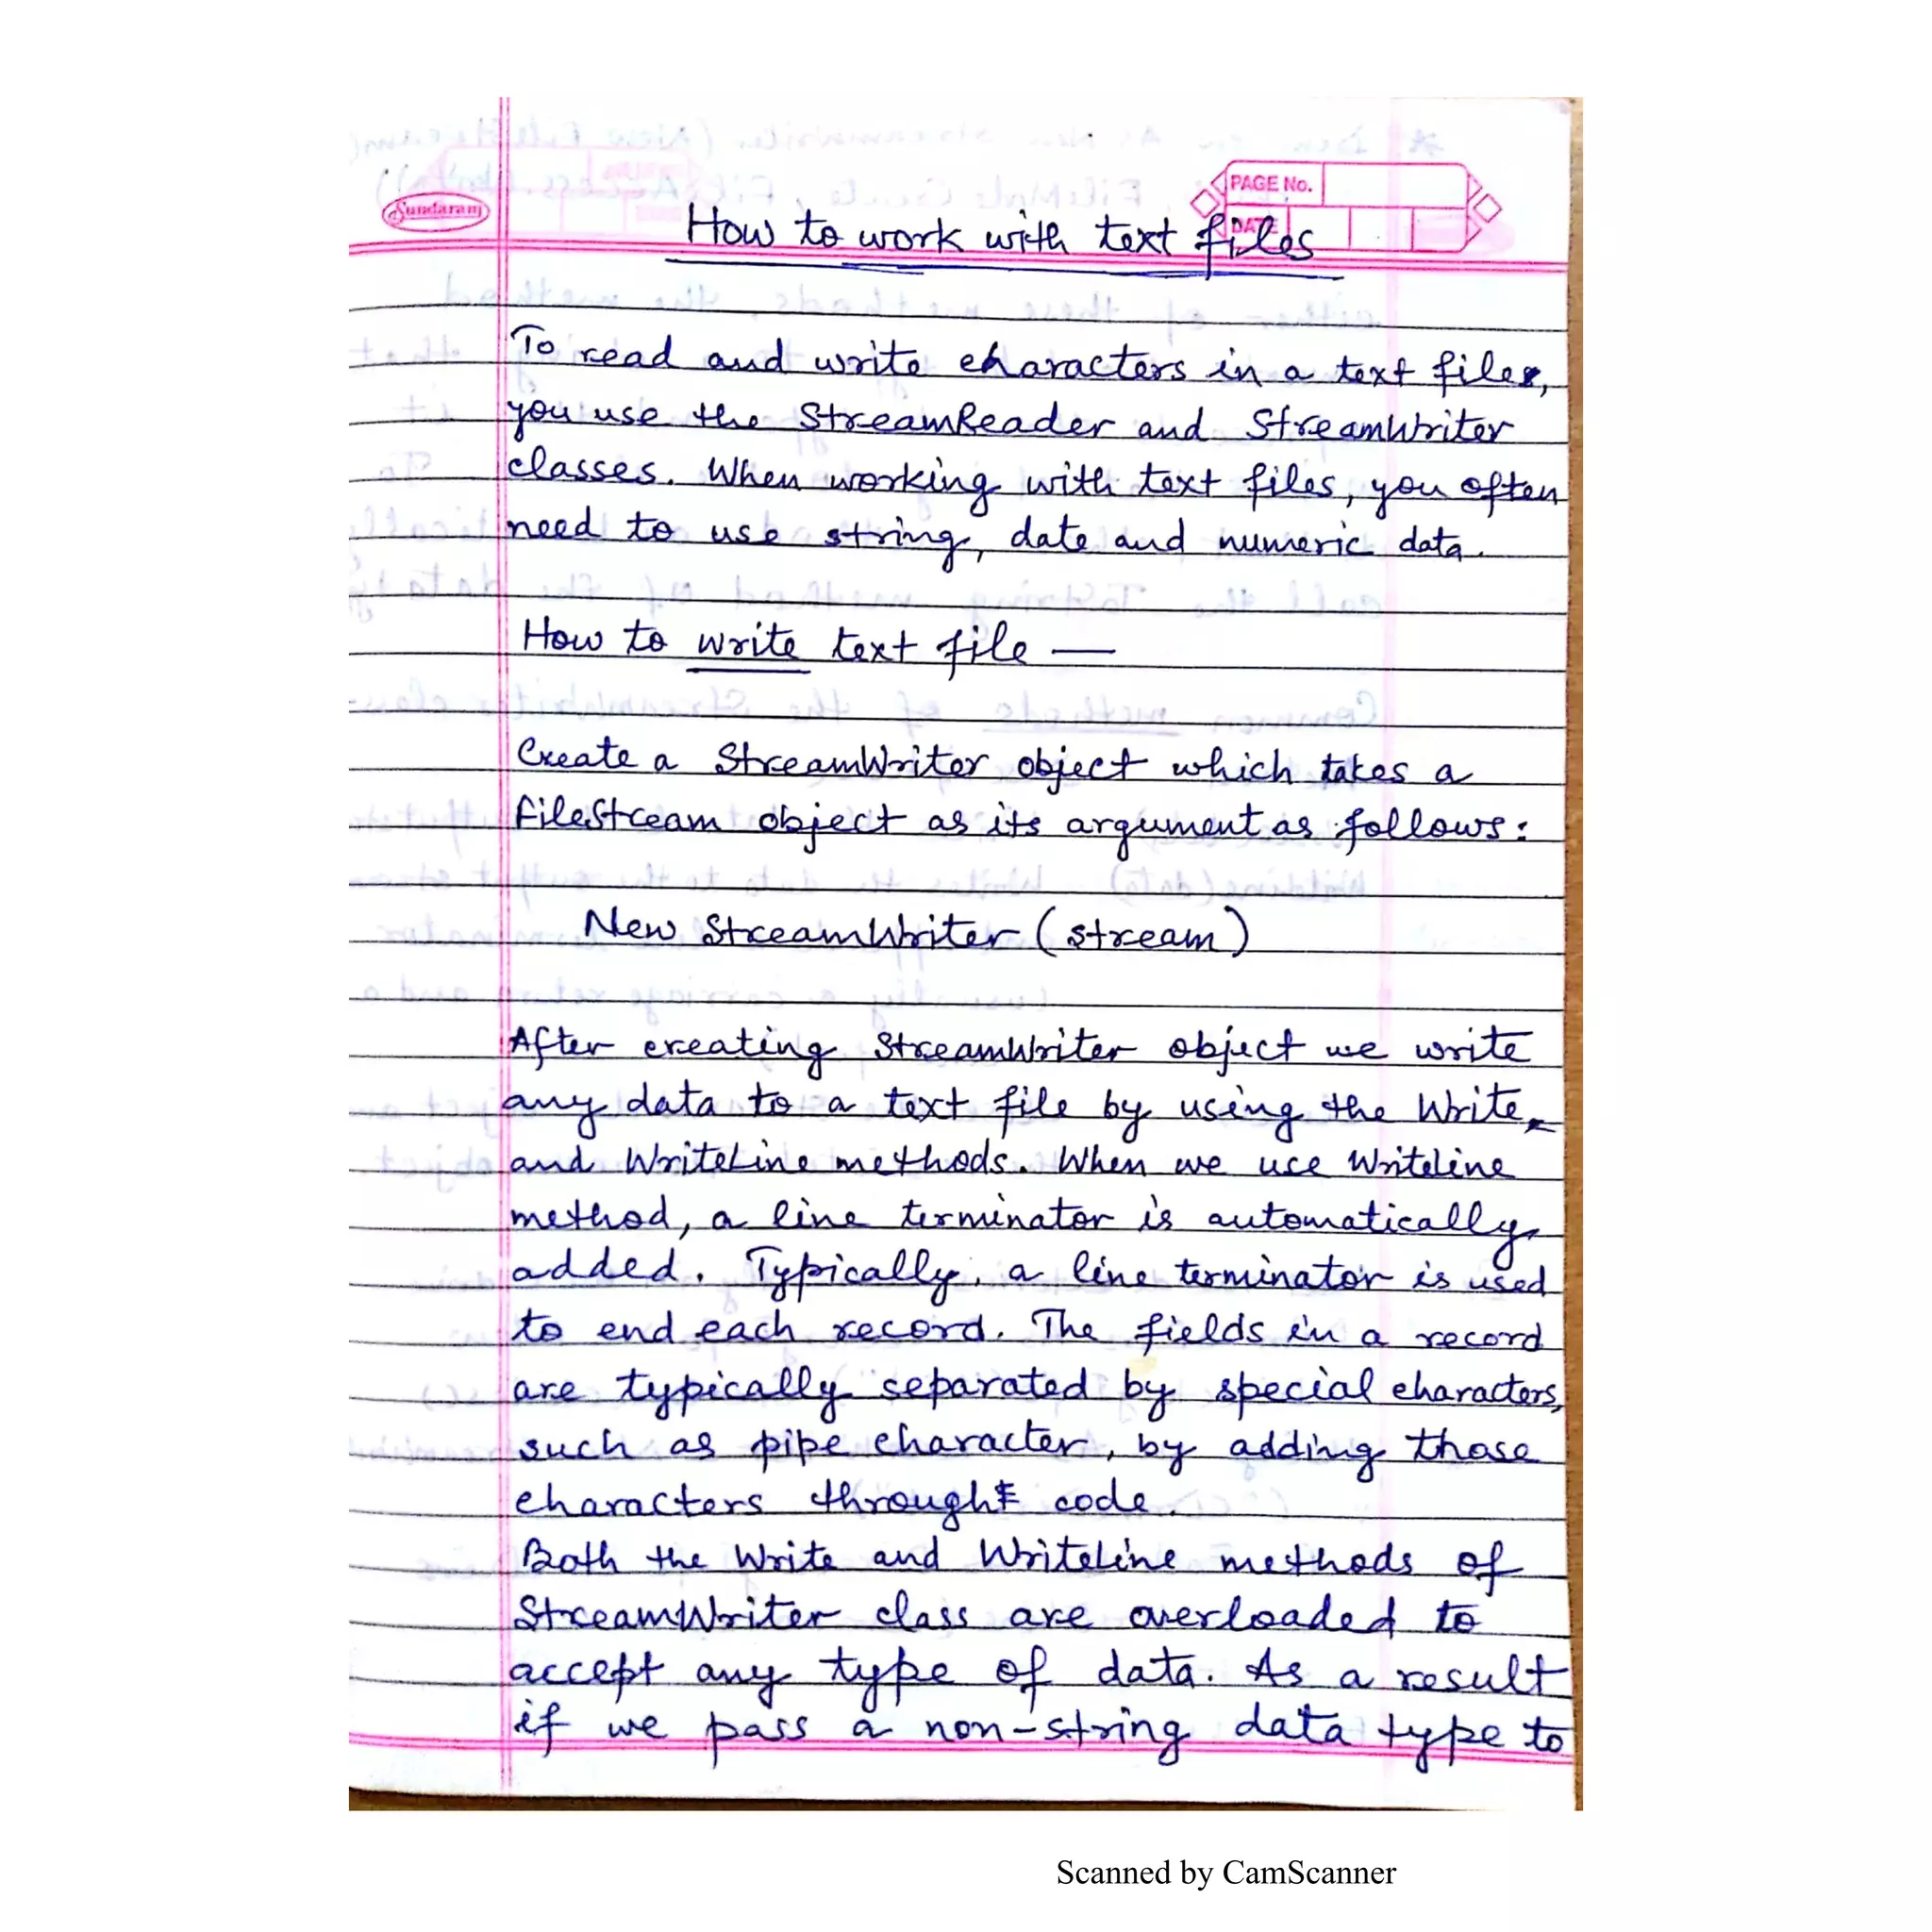 Sundaram
PAGE No.
DATE
How to work with text files
To read and write characters in a text files,
you use the StreamReader and StreamWriter
classes. When working with text files, you often
need to use string, date and numeric data.
How to write text file —
Create a StreamWriter object which takes a
FileStream object as its argument as follows:
New StreamWriter (stream)
After creating StreamWriter object we write
any data to a text file by using the Write
and WriteLine methods. When we use WriteLine
method, a line terminator is automatically
added. Typically, a line terminator is used
to end each record. The fields in a record
are typically separated by special characters,
such as pipe character, by adding those
characters through code.
Both the Write and WriteLine methods of
StreamWriter class are overloaded to
accept any type of data. As a result
if we pass a non-string data type to
Scanned by CamScanner